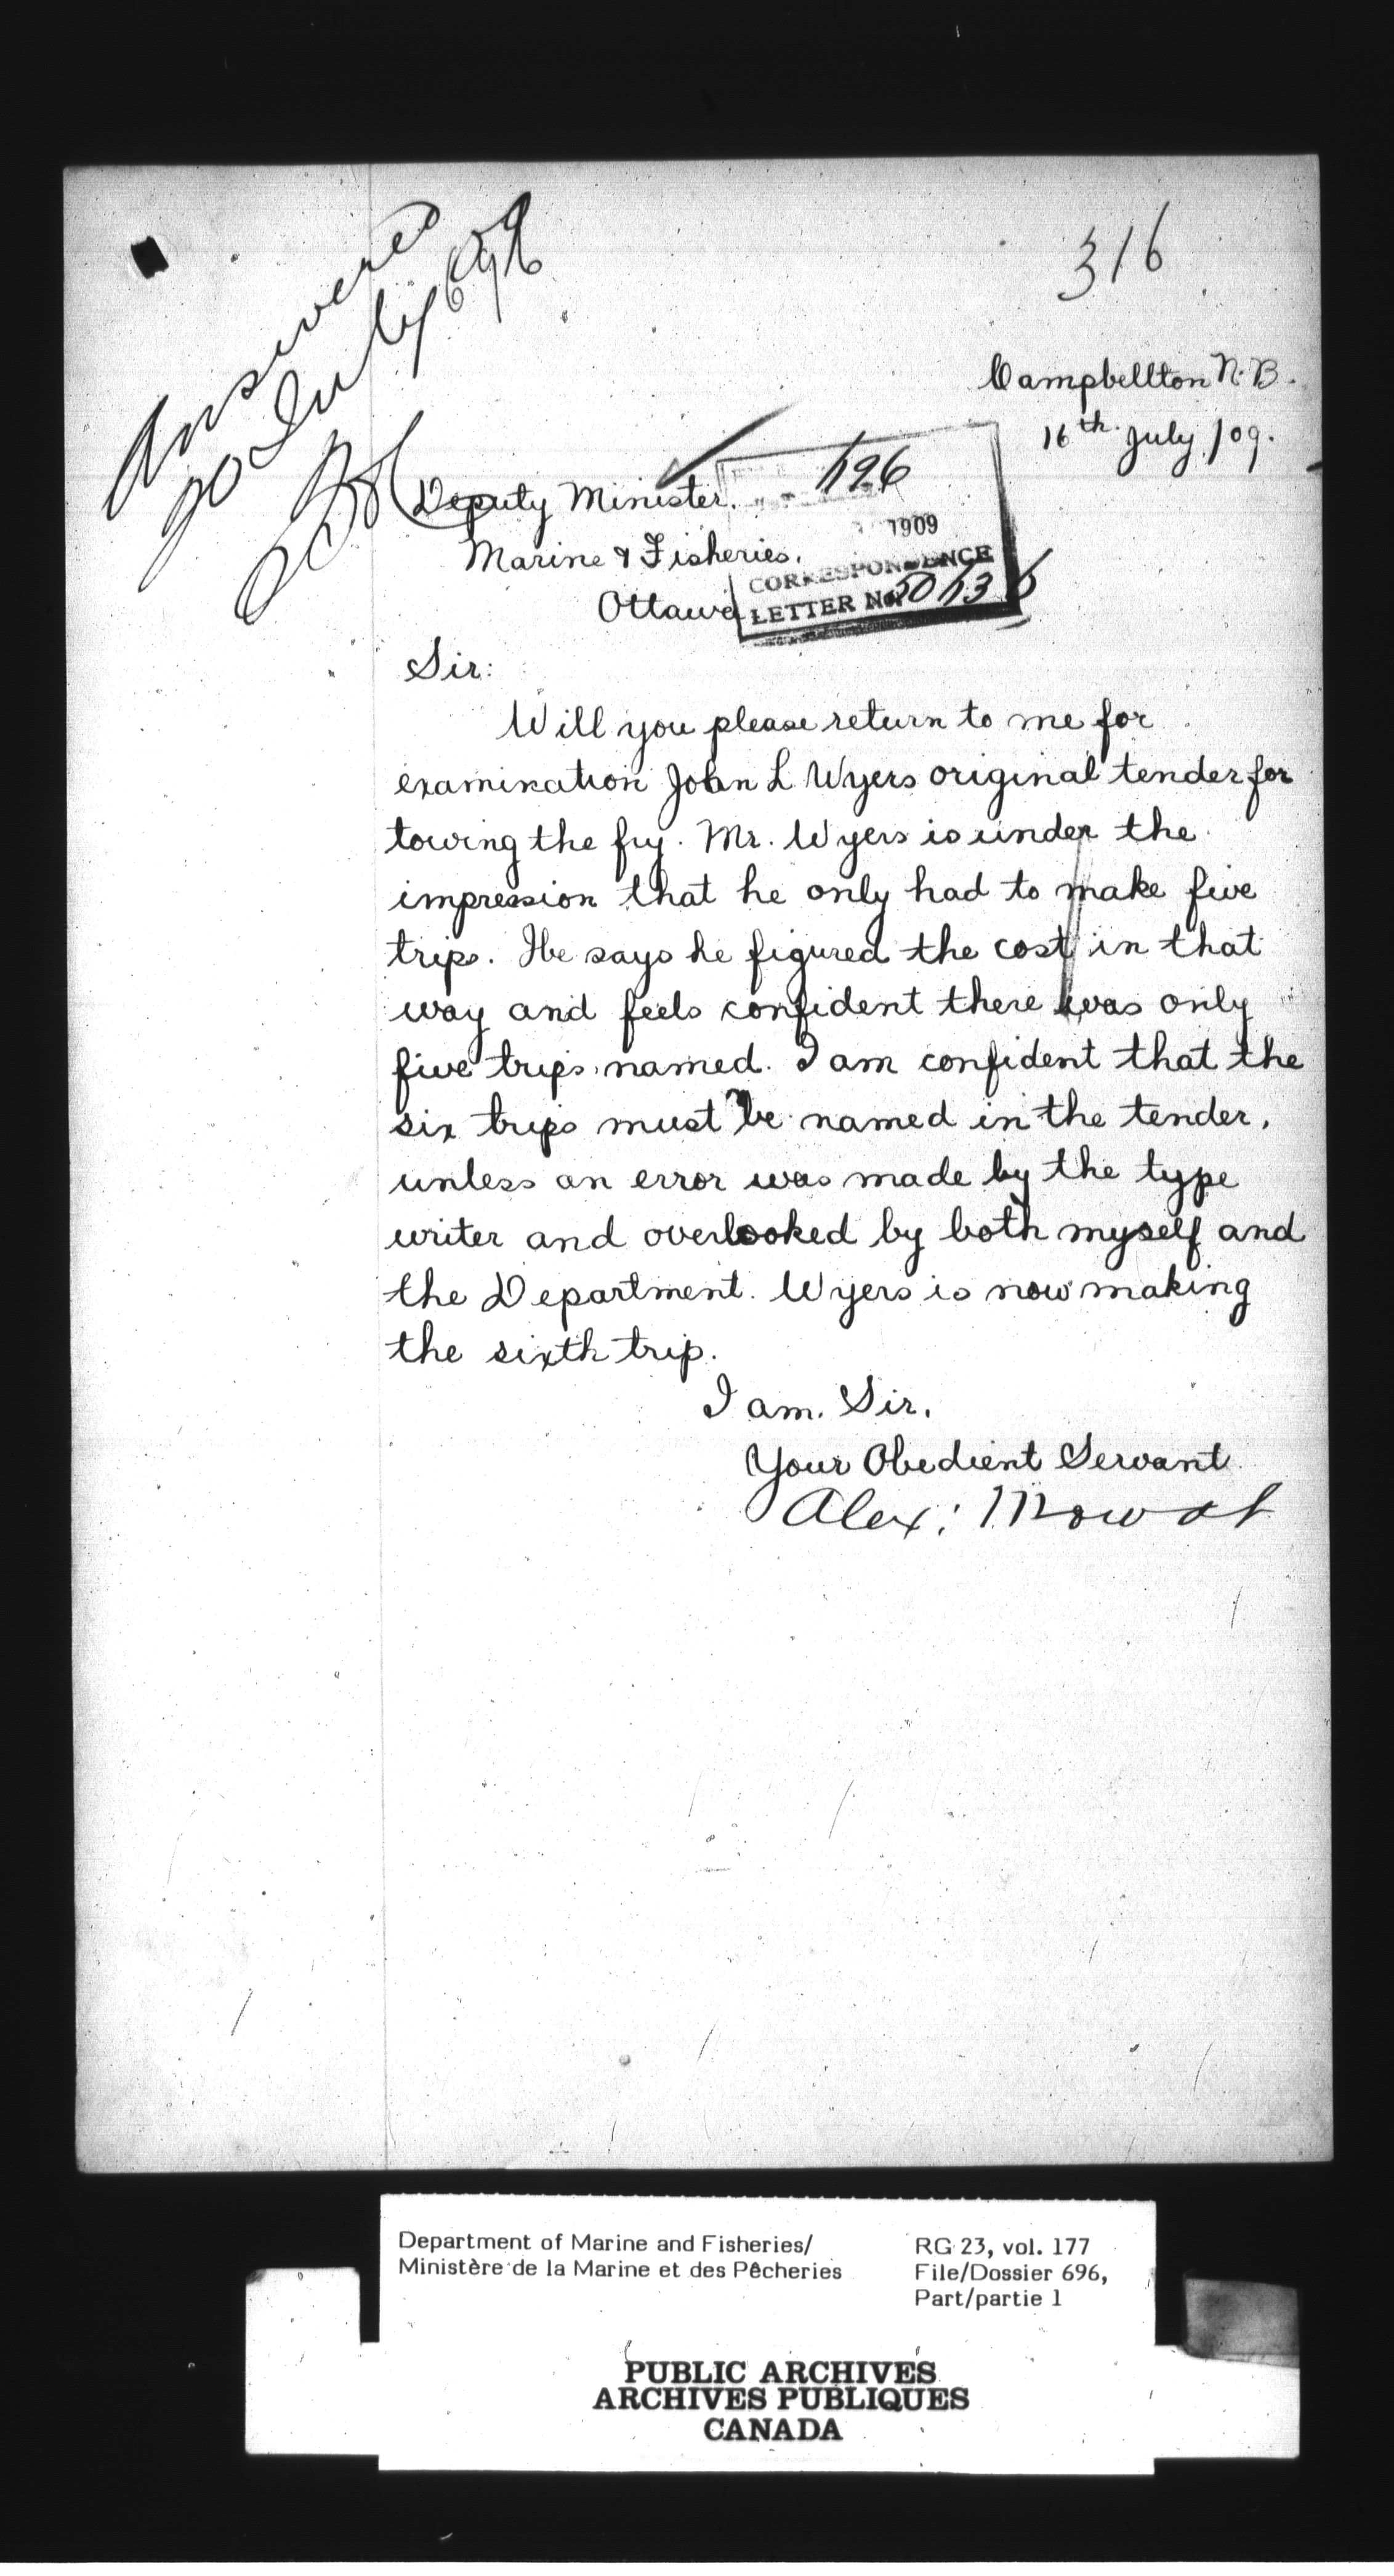 316
Answered
20 July 09
Campbellton N.B.
16th July /09.
Deputy Minister.
Marine & Fisheries.
Ottawa
1909
CORRESPONDENCE
LETTER No.
Sir:
Will you please return to me for
examination John L Wyers original tender for
towing the fry. Mr. Wyers is under the
impression that he only had to make five
trips. He says he figured the cost in that
way and feels confident there was only
five trips named. I am confident that the
six trips must be named in the tender,
unless an error was made by the type
writer and overlooked by both myself and
the Department. Wyers is now making
the sixth trip.
I am. Sir.
Your Obedient Servant
Alex: Mowat
Department of Marine and Fisheries/
Ministère de la Marine et des Pêcheries
RG 23, vol. 177
File/Dossier 696,
Part/partie 1
PUBLIC ARCHIVES
ARCHIVES PUBLIQUES
CANADA